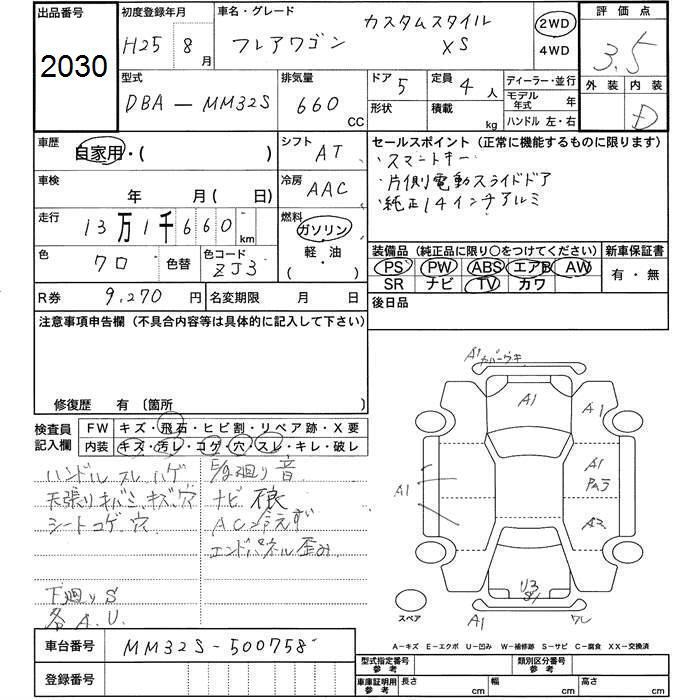 出品番号
2030
初度登録年月
H25 8月
車名・グレード
フレアワゴン
カスタムスタイル
XS
2WD
4WD
評価点
3.5
外装 内装
D
型式
DBA-MM32S
排気量
660 CC
ドア 5
形状
定員 4人
積載 kg
ディーラー・並行
モデル年式 年
ハンドル 左・右
車歴
自家用・( )
シフト AT
車検
年 月( 日)
冷房 AAC
走行
13万1千660 km
燃料
ガソリン
軽・油
( )
色
クロ
色替
色コード
ZJ3
R券 9,270円
名変期限 月 日
セールスポイント(正常に機能するものに限ります)
・スマートキー
・片側電動スライドドア
・純正14インチアルミ
装備品(純正品に限り○をつけてください)
PS PW ABS エアB AW
SR ナビ TV カワ
新車保証書
有・無
後日品
注意事項申告欄(不具合内容等は具体的に記入して下さい)
修復歴 有 〔箇所
検査員記入欄
FW キズ・飛石・ヒビ割・リペア跡・X要
内装 キズ・汚レ・コゲ・穴・スレ・キレ・破レ
ハンドル スレ ハゲ
天張りキバミ、キズ、穴
シートコゲ、穴
下廻りS
各A.U
E/g廻り音
ナビ痕
AC冷えず
エンドパネル歪み
A1 カバーウキ
A1
A1
A1
A1
A2
U3
A1
ワレ
スペア
A-キズ E-エクボ U-凹み W-補修跡 S-サビ C-腐食 XX-交換済
車台番号
MM32S-500758
登録番号
型式指定番号 参考
類別区分番号 参考
車庫証明用 参考
長さ cm
幅 cm
高さ cm